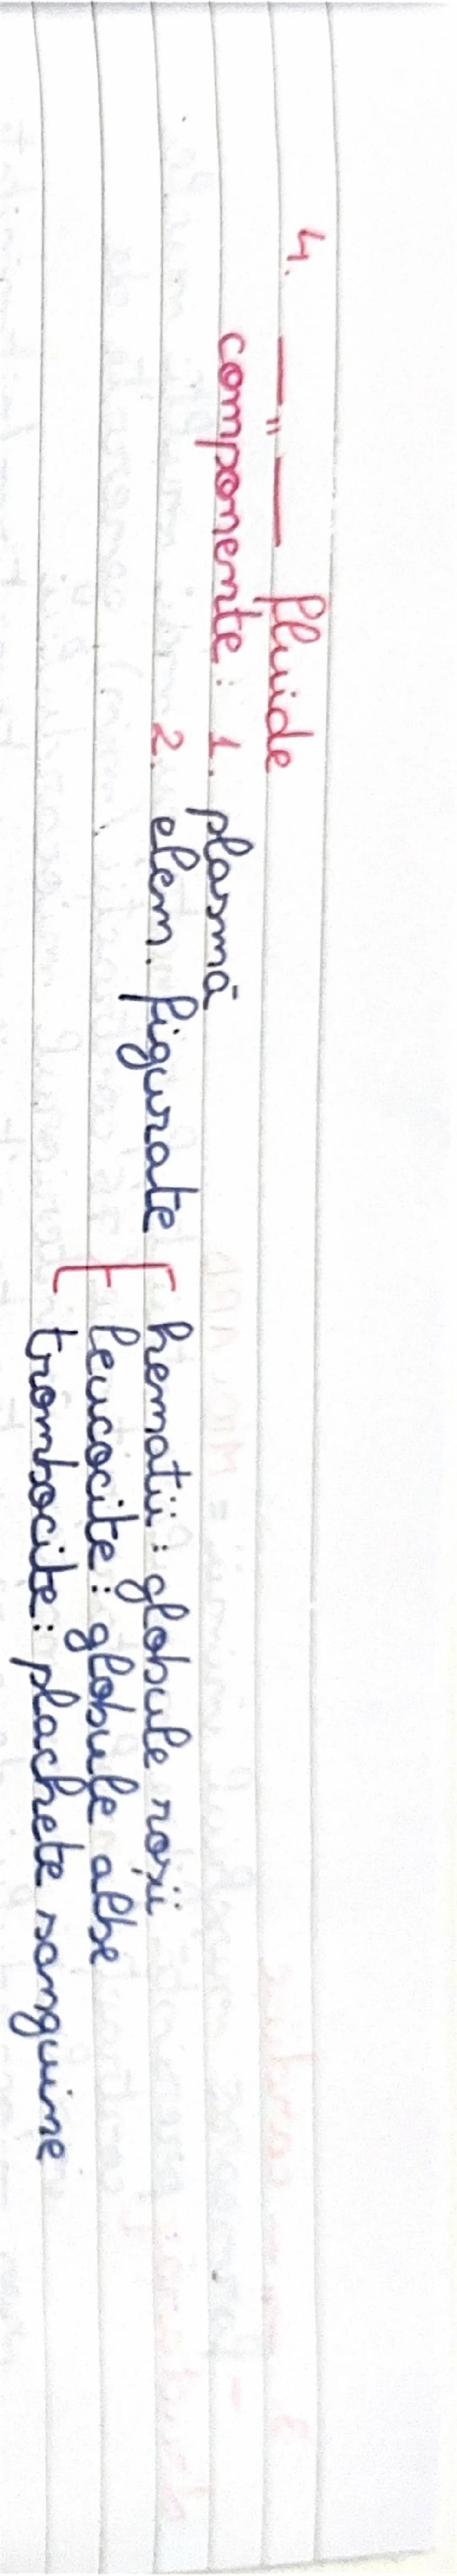 4. —"— fluide
componente: 1. plasmă
2. elem. figurate [ hematii: globule roșii
leucocite: globule albe
trombocite: plachete sanguine